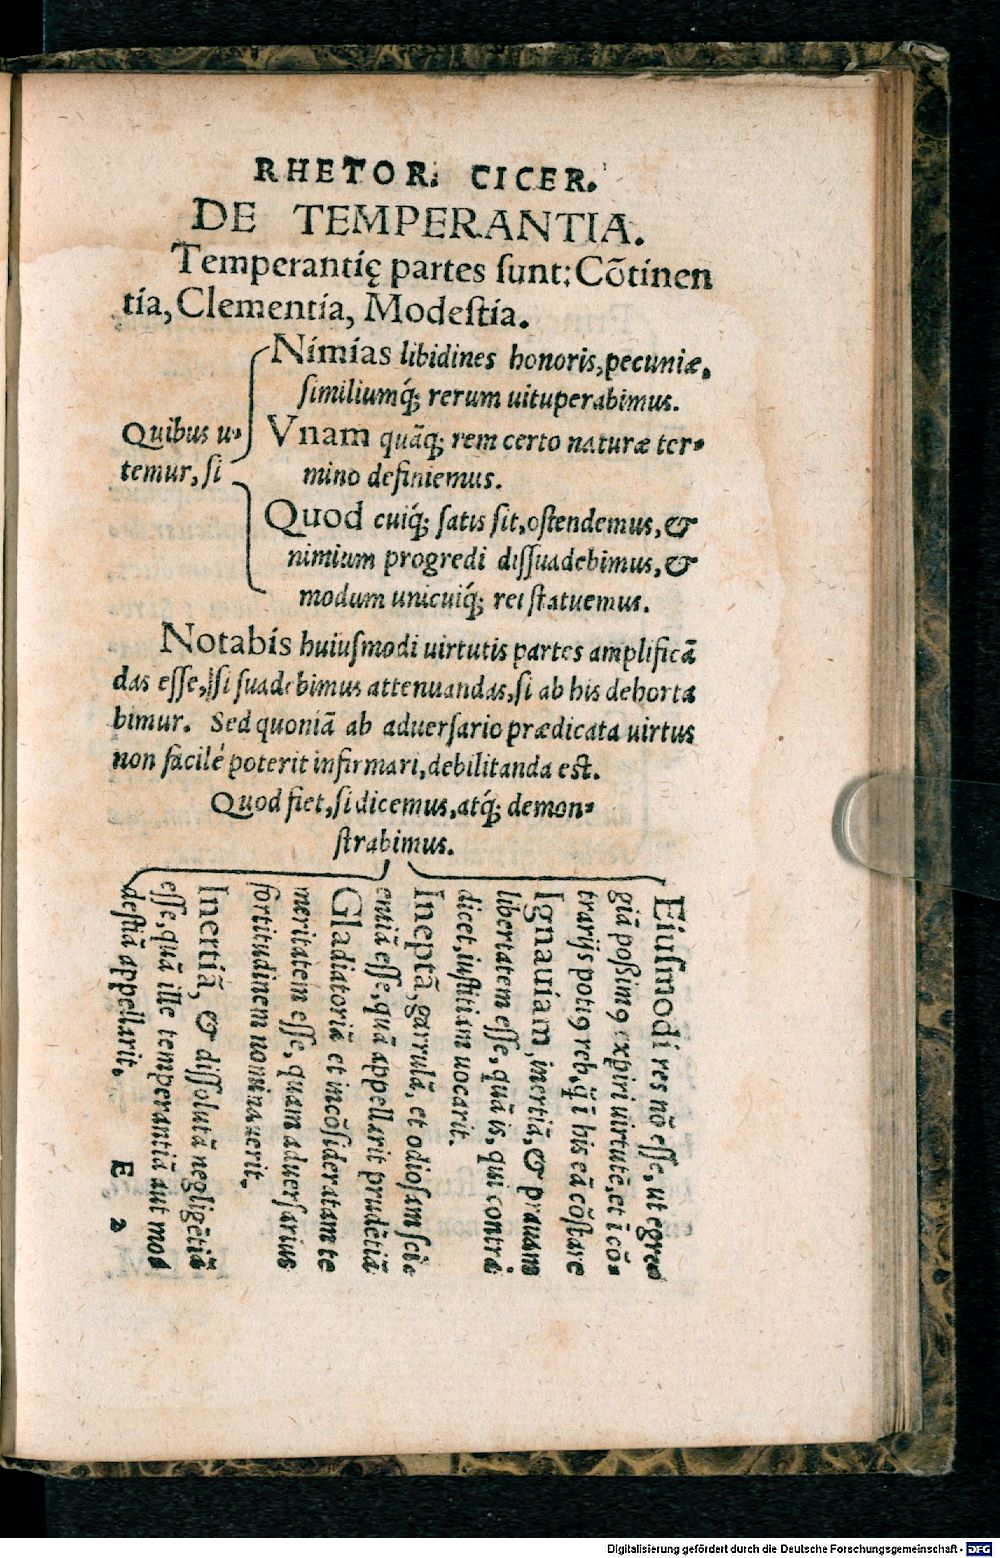 RHETOR. CICER.
DE TEMPERANTIA.
Temperantię partes ſunt: Cõtinen
tía, Clementía, Modeſtía.
Nímías libidines honoris, pecuniæ,
ſimiliumq́; rerum uituperabimus.
Quibus u-
temur, ſi
Vnam quãq; rem certo naturæ ter-
mino definiemus.
Quod cuiq́; ſatis ſit, oſtendemus, &
nimium progredi diſſuadebimus, &
modum unicuiq́; rei ſtatuemus.
Notabís huiuſmodi uirtutis partes amplificã
das eſſe, ſi ſuadebimus attenuandas, ſi ab his dehorta
bimur. Sed quoniã ab aduerſario prædicata uirtus
non facilé poterit infirmari, debilitanda est.
Quod fiet, ſi dicemus, atq́; demon-
ſtrabimus.
Eiuſmodi res nõ eſſe, ut egre-
giã poßimꝰ expiri uirtutẽ, et ĩ cõ-
trarijs potiꝰ reb. q̃ ĩ his eã cõſtare
Ignauíam, inertiã, & prauam
libertatem eſſe, quã is, qui contra
dicet, iuſtitiam uocarit.
Ineptã, garrulã, et odioſam ſci-
entiã eſſe, quã appellarit prudẽtiã
Gladiatoriã et incõſideratam te
meritatem eſſe, quam aduerſarius
fortitudinem nominauerit.
Inertiã, & diſſolutã negligẽtiã
eſſe, quã ille temperantiã aut mo-
deſtiã appellarit.
E 2
Digitalisierung gefördert durch die Deutsche Forschungsgemeinschaft - DFG